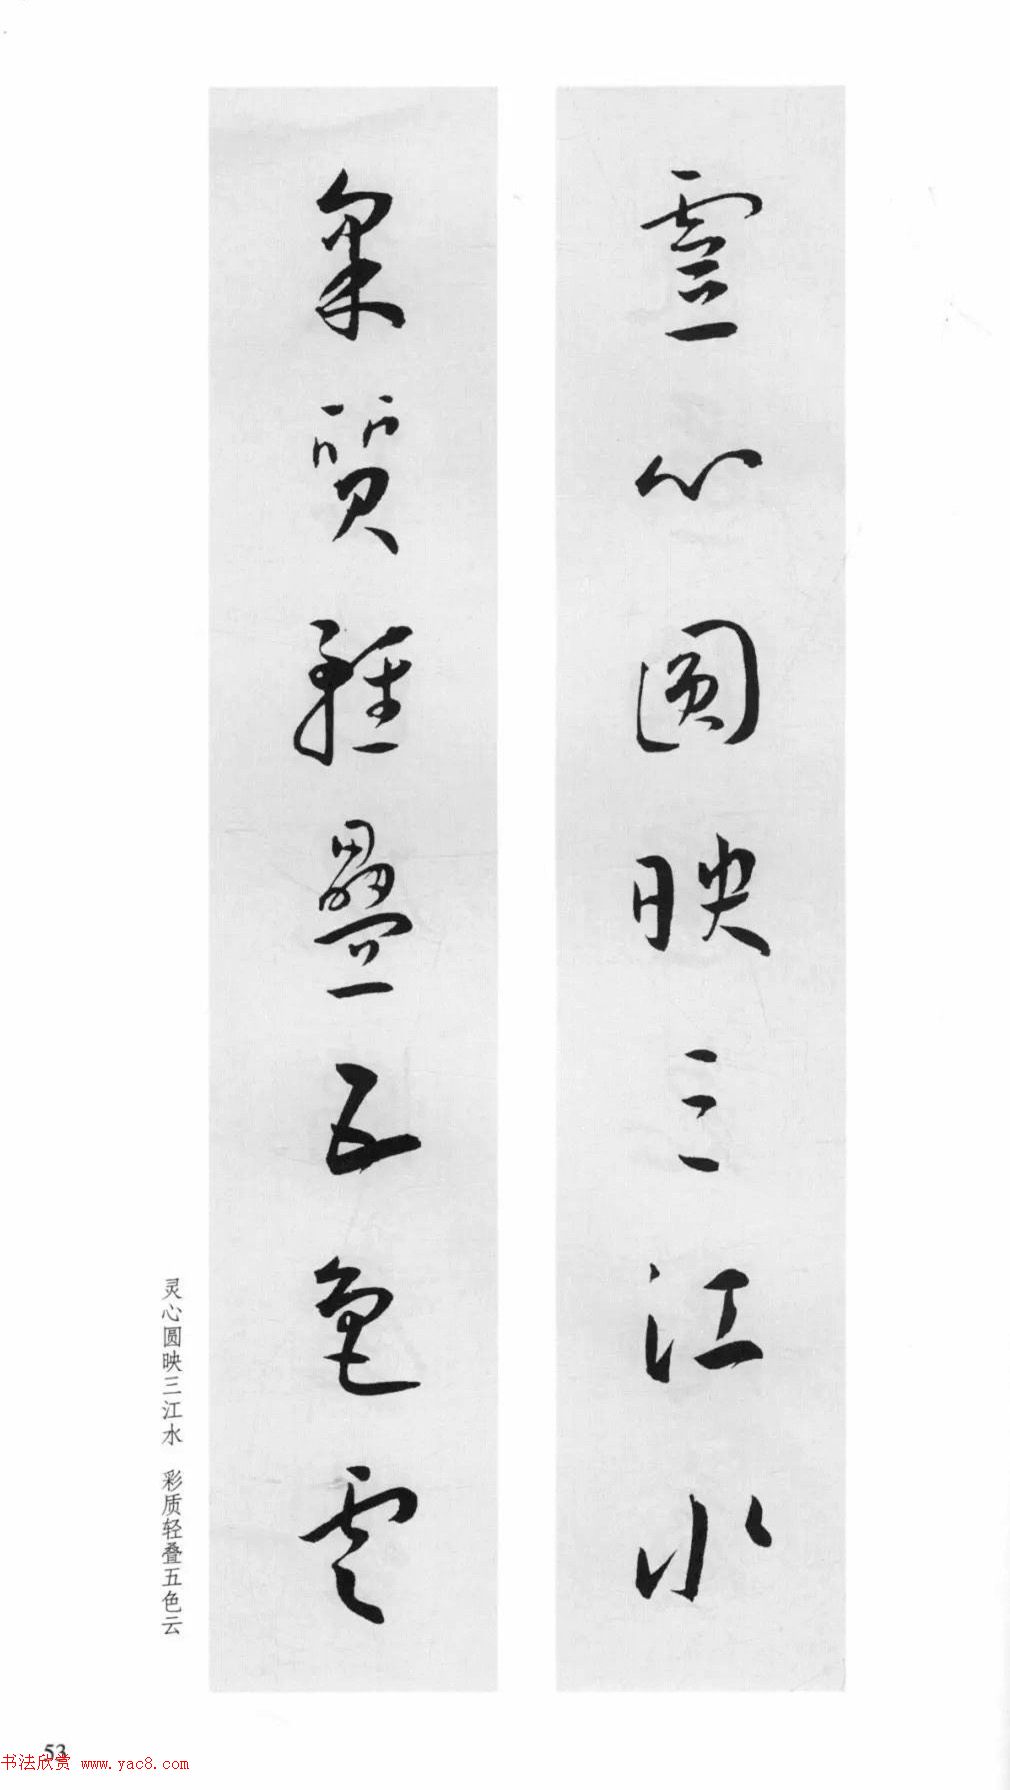 靈心圓映三江水
彩質輕疊五色雲
灵心圆映三江水　彩质轻叠五色云
53
书法欣赏 www.yac8.com